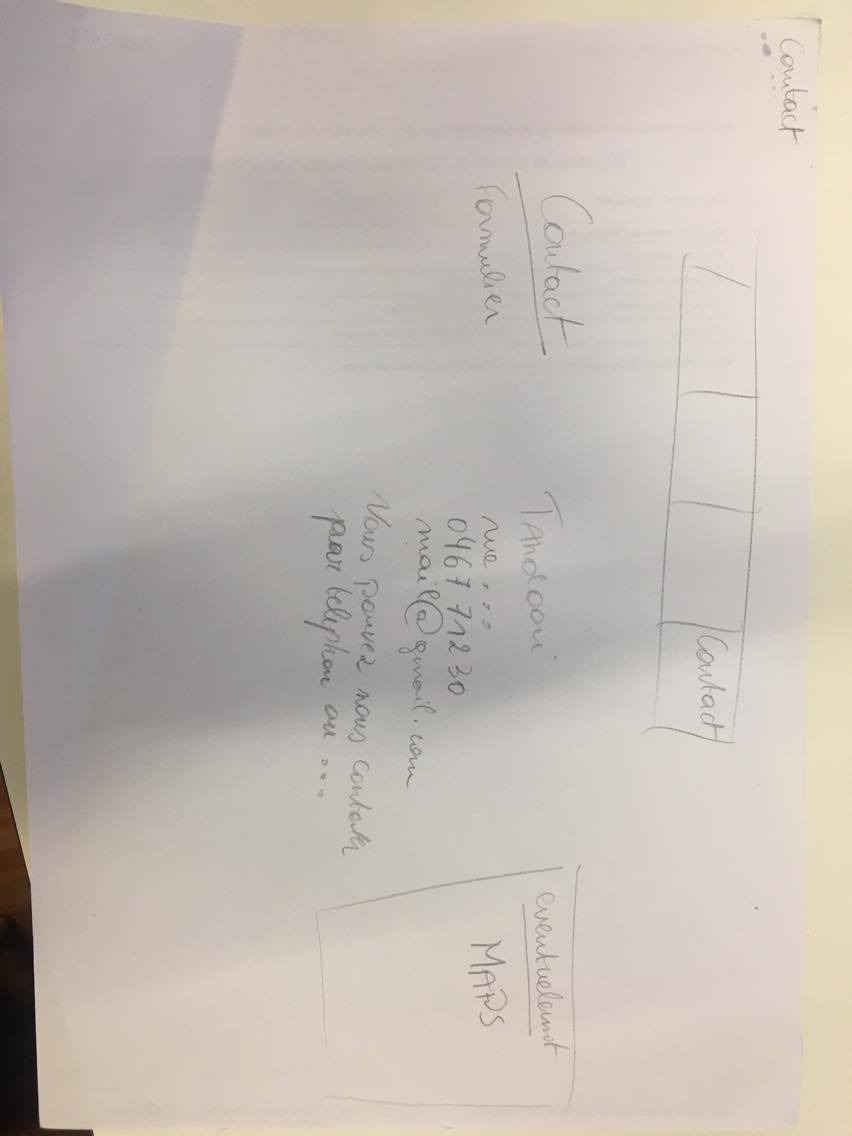 Contact
Contact
Contact
Formulier
TAndoori
rue ...
0467 71 2 30
mail@gmail.com
Vous pouvez nous contacter
par telephon au ...
eventuelemt
MAPS